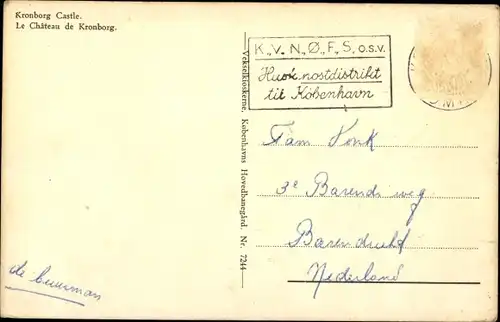 Kronborg Castle.
Le Château de Kronborg.
K., V., N., Ø., F., S, o.s.v.
Husk postdistrikt
til København
Vekselkioskerne, Københavns Hovedbanegård. Nr. 7244
Fam Vonk
3e Barendrweg
Barendrecht
Nederland
de buurman